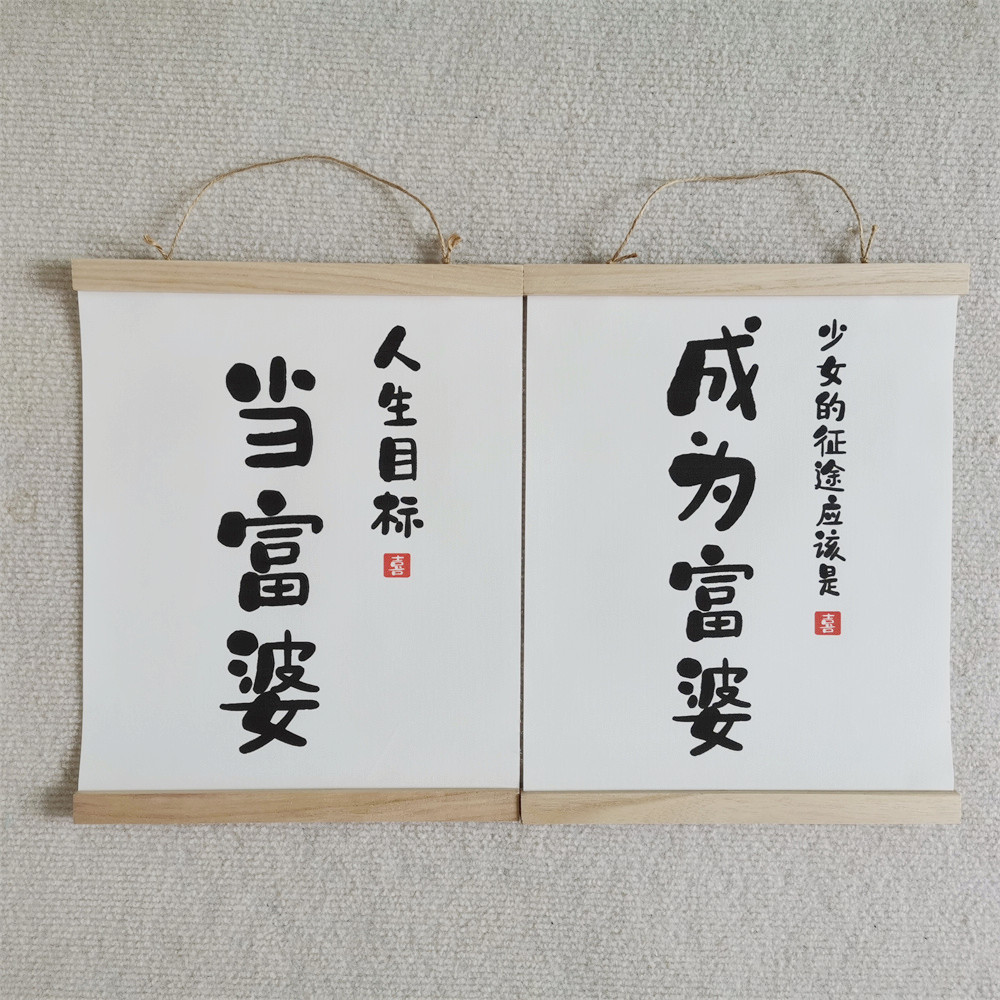 人生目标
喜
当富婆
少女的征途应该是
喜
成为富婆